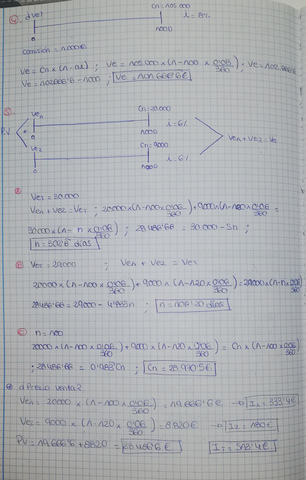 ④ d Vef?
Cn = 105.000
i = 8%
0
100D
comisión = 1.000€
Ve = Cn × (1 - ni) ; Ve = 105.000 × (1 - 100 × 0'08/360) ; Ve = 102.666'6
Ve = 102.666'6 - 1000 ; Ve = 101.666'6€
⑤
Ve1
Cn: 20.000
i = 6%
0
100D
PV
Ve1 + Ve2 = Ve
Ve2
Cn: 9000
i = 6%
0
Ⓐ
VeT = 30.000
Ve1 + Ve2 = VeT ; 20000 × (1 - 100 × 0'06/360) + 9000 × (1 - 120 × 0'06/360) =
30000 × (1 - n × 0'06/360) ; 28486'66 = 30.000 - 5n ;
Ⓑ VeT = 29000 ; Ve1 + Ve2 = VeT
20000 × (1 - 100 × 0'06/360) + 9000 × (1 - 120 × 0'06/360) = 29000 × (1 - n × 0'06/360)
28486'66 = 29000 - 4'83n ; n = 106'20 días
Ⓒ n = 100
20000 × (1 - 100 × 0'06/360) + 9000 × (1 - 120 × 0'06/360) = Cn × (1 - 100 × 0'06/360)
; 28.486'66 = 0'983Cn ; Cn = 28.970'5€
d Precio venta?
Ve1 = 20000 × (1 - 100 × 0'06/360) = 19.666'6€ → I1 = 333'4€
Ve2 = 9000 × (1 - 120 × 0'06/360) = 8820€ → I2 = 180€
PV = 19.666'6 + 8820 = 28.486'6€
IT = 513'4€